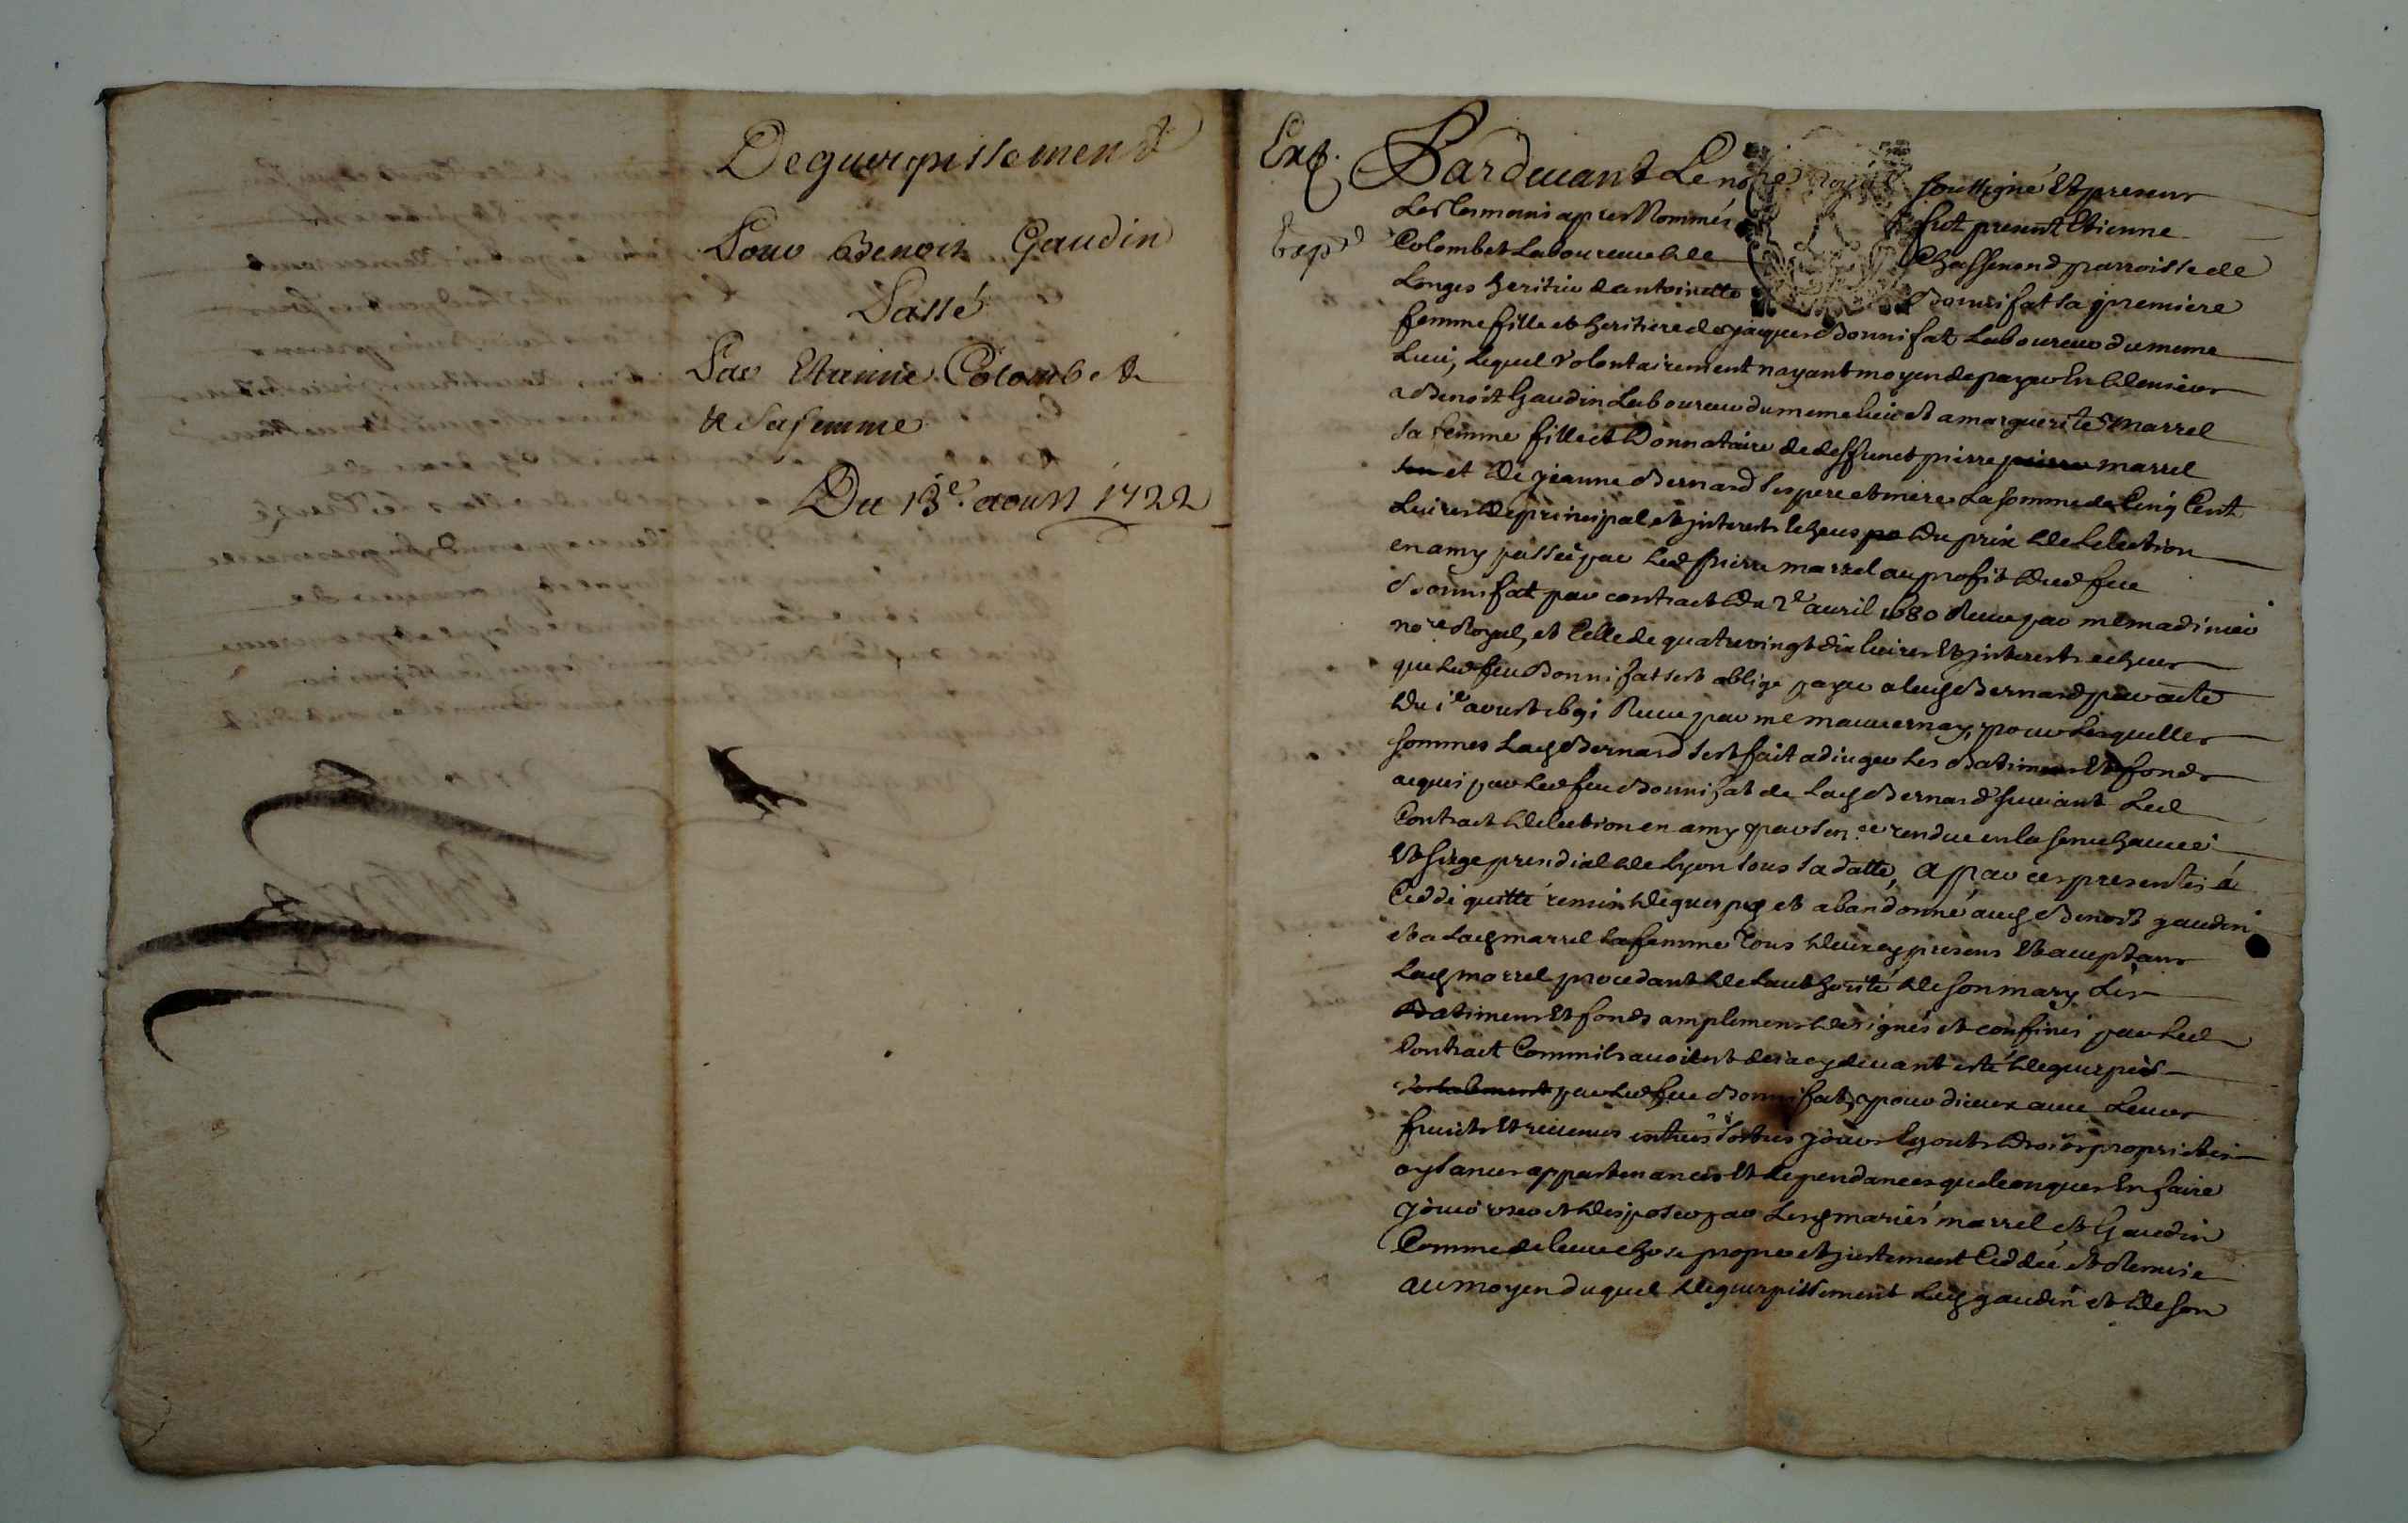 Deguerpissement
Pour Benoit Gaudin
Passé
Par Etienne Colombet
& sa femme
Du 13e. aoust 1722
Ext.
Exp.d
Pardevant Le no.re Royal soussigné Et presens
Les tesmoins apres Nommés fut present Etienne
Colombet Laboureur de Chassenond parroisse de
Longes heritier dantoinette Bonnifat sa premiere
femme fille et heritiere de jacques Bonnifat Laboureur du meme
Lieu, Lequel volontairement nayant moyen de payer En deniers
a Benoit Gaudin Laboureur du meme lieu et a marguerite Marrel
sa femme fille et Donnataire de deffunct pierre pierre marrel
et de jeanne Bernard ses pere et mere La somme de Cinq Cent
Livres de principal et jnterests echeus du prix de Lelection
en amy passée par led pierre marrel au profit dud feu
Bonnifat par contract du 2e avril 1680 Receu par me madinier
no.re Royal, et Celle de quatrevingt dix livres Et jnterests echeus
que led feu Bonnifat sest obligé payer a lad Bernard par acte
du 1e aoust 1691 Receu par me mauvernay, pour Lesquelles
sommes Lad Bernard sest fait adjuger Les Batimens Et fonds
acquis par led feu Bonnifat de Lad Bernard suivant Led
Contract delection en amy par sen.ce rendue en la senechaucée
Et siege presidial de Lyon sous sa datte, a par ces presentes
Ceddé quitté remis deguerpy et abandonné aud Benoit gaudin
et a Lad marrel sa femme tous deux jcy presens Et acceptans
Lad marrel procedant de Lauthorité de son mary Les
Batimens Et fonds amplement designés et confinés par Led
Contract Comme ils avoient desja cydevant esté deguerpis
par led feu Bonnifat, pour diceux avec Leurs
fruits Et revenus entrées sorties droits proprietés
aysances appartenances Et dependances quelconques En faire
jouir user et disposer par Lesd mariés marrel et Gaudin
Comme de leur chose propre et justement Ceddée et Remise
au moyen duquel deguerpissement Led gaudin et de son